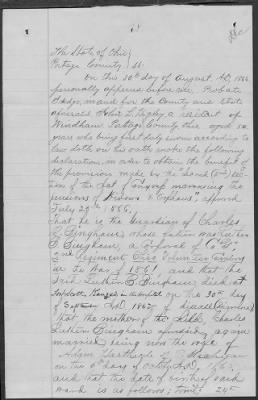 The State of Ohio }
Portage County } ss.
On this 30th day of August A.D. 1866
personally appeared before me, Probate
Judge, in and for the County and State
aforesaid John L. Higley a resident of
Windham Portage County Ohio aged 50
years who being first duly sworn according to
law doth on his oath make the following
declaration, in order to obtain the benefit of
the provision made by the third (3d) Sec-
tion of the Act of Congress increasing the
pensions of Widows & Orphans, approved
July 25th 1866
That he is the Guardian of Charles
L. Bingham, whose father was Luther
B. Bingham, a Corporal of Co.
2nd Regiment Ohio Volunteer Cavalry
in the War of 1861 and that the
said Luther B. Bingham died at
Kansas in hospital on the 30th day
of September A.D. 1862 of
that the mother of the child, Charles
Luther Bingham aforesaid, again
married being now the wife of
Adam of Michigan
on the 6th day of October A.D. 186
and that the date of birth of said
ward is as follows; 25th